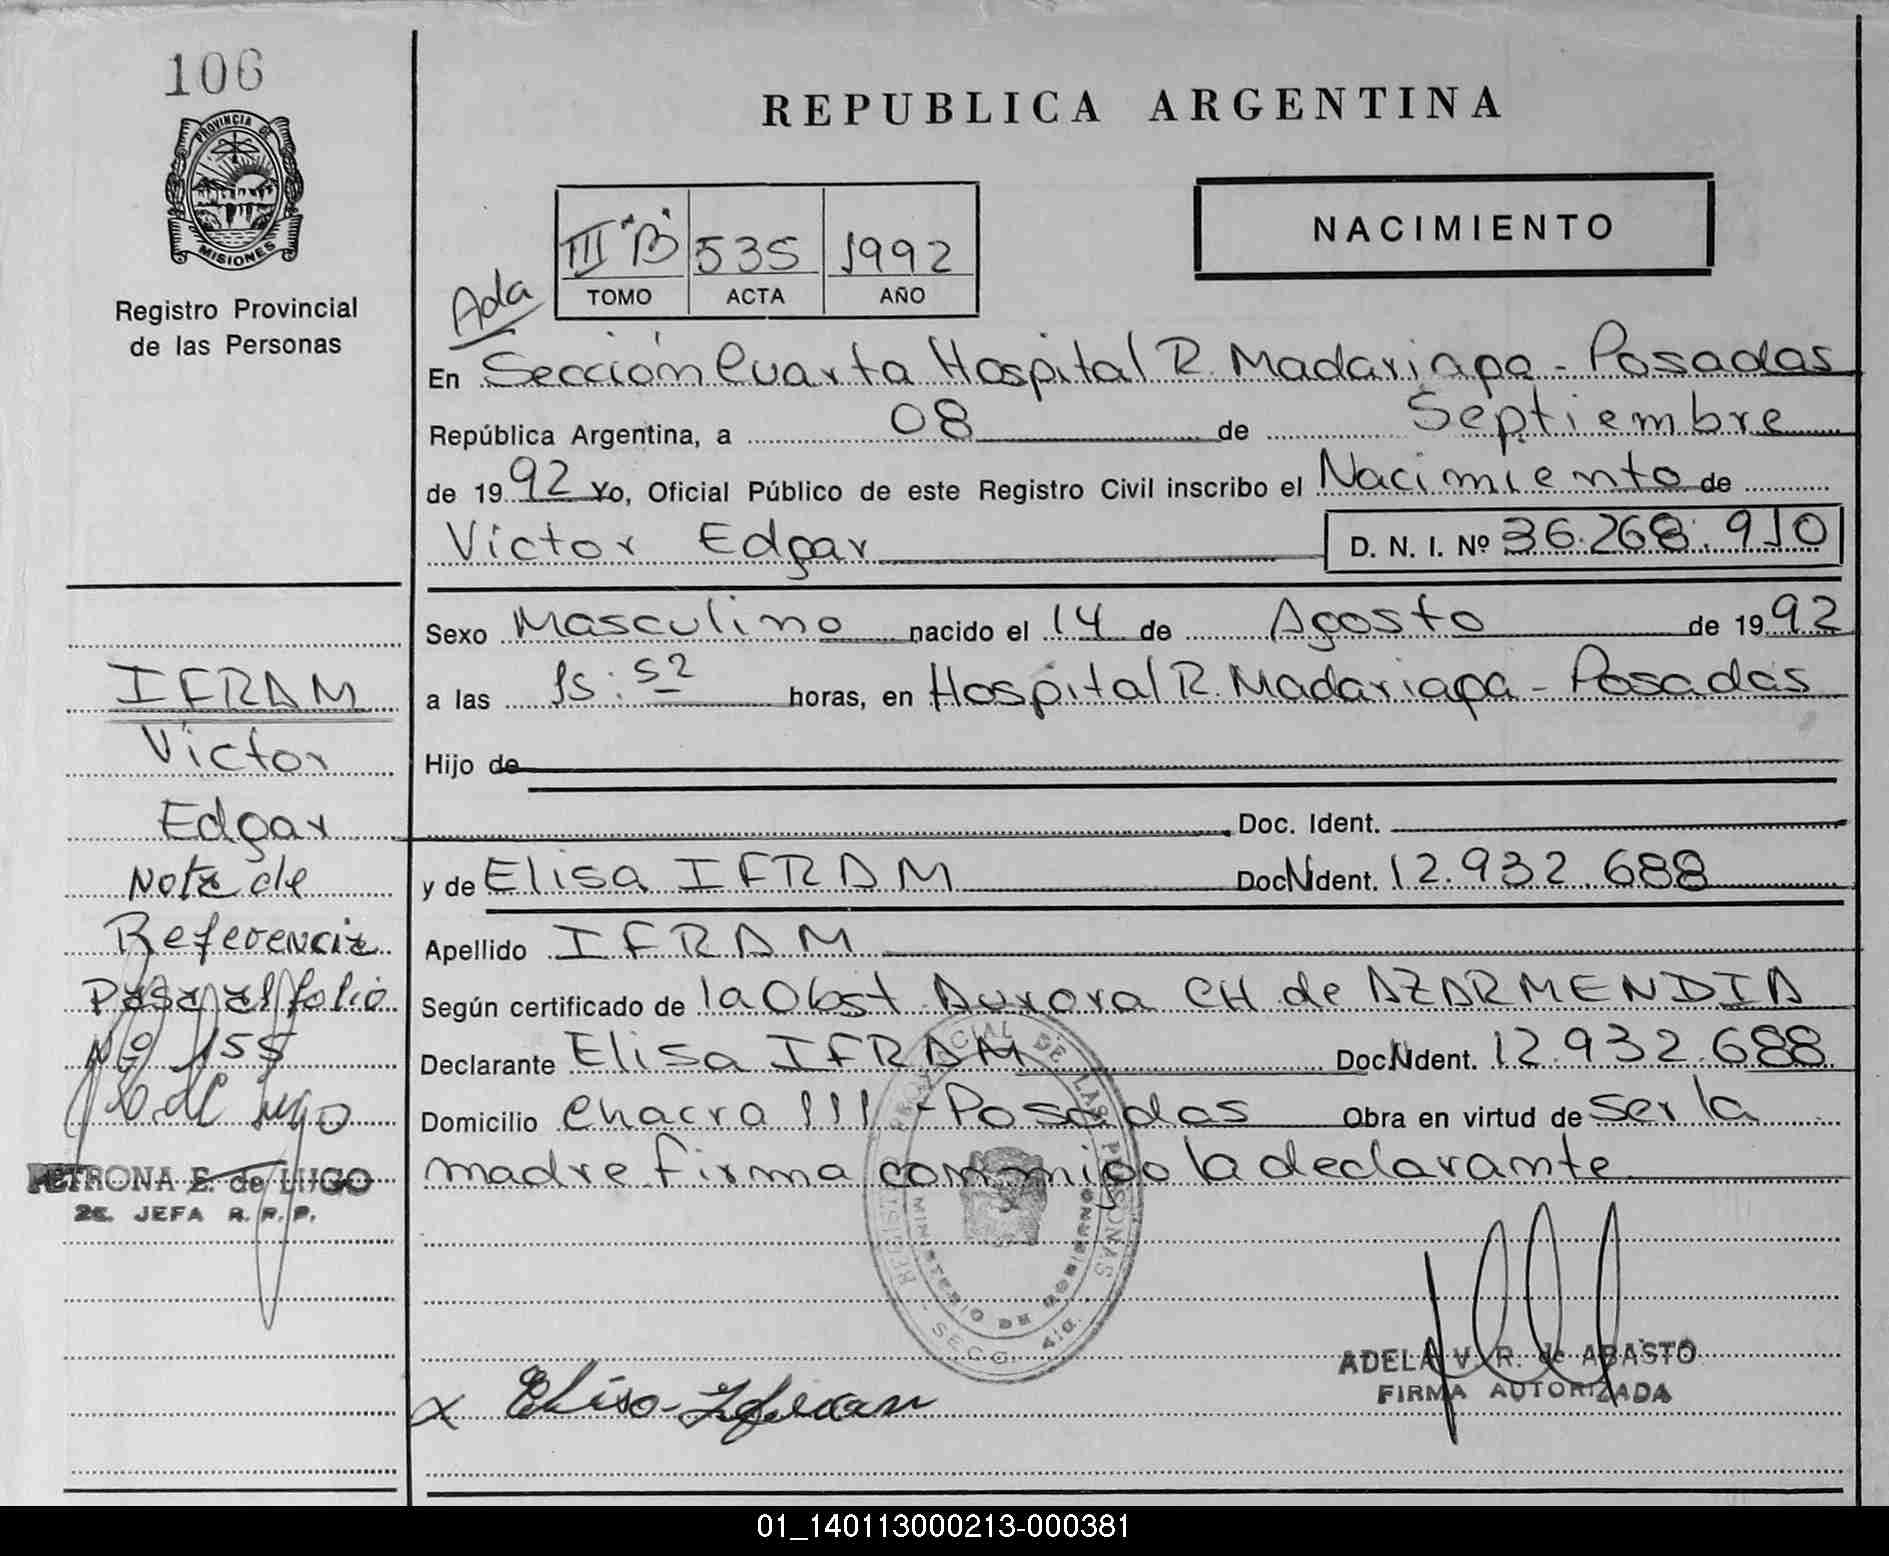 106
PROVINCIA DE
MISIONES
Registro Provincial
de las Personas
REPUBLICA ARGENTINA
NACIMIENTO
III "B" 535 1992
TOMO ACTA AÑO
Ada
En Sección Cuarta Hospital R. Madariaga - Posadas
República Argentina, a 08 de Septiembre
de 1992 Yo, Oficial Público de este Registro Civil inscribo el Nacimiento de
Victor Edgar D. N. I. Nº 36.268.910
Sexo Masculino nacido el 14 de Agosto de 1992
a las 15:52 horas, en Hospital R. Madariaga - Posadas
Hijo de
Doc. Ident.
y de Elisa IFRAM Doc Ident. 12.932.688
Apellido IFRAM
Según certificado de la Obst Aurora CH de AZARMENDIA
Declarante Elisa IFRAM Doc Ident. 12.932.688
Domicilio Chacra 111 - Posadas Obra en virtud de ser la
madre firma conmigo la declarante
IFRAM
Victor
Edgar
Nota de
Referencia
Pasa al folio
Nº 155
PETRONA E. de LUGO
2E. JEFA R. P. P.
REGISTRO PROVINCIAL DE LAS PERSONAS
MINISTERIO DE GOBIERNO
SECC. 4ta.
x Elisa Ifram
ADELA V. R. de ABASTO
FIRMA AUTORIZADA
01_140113000213-000381